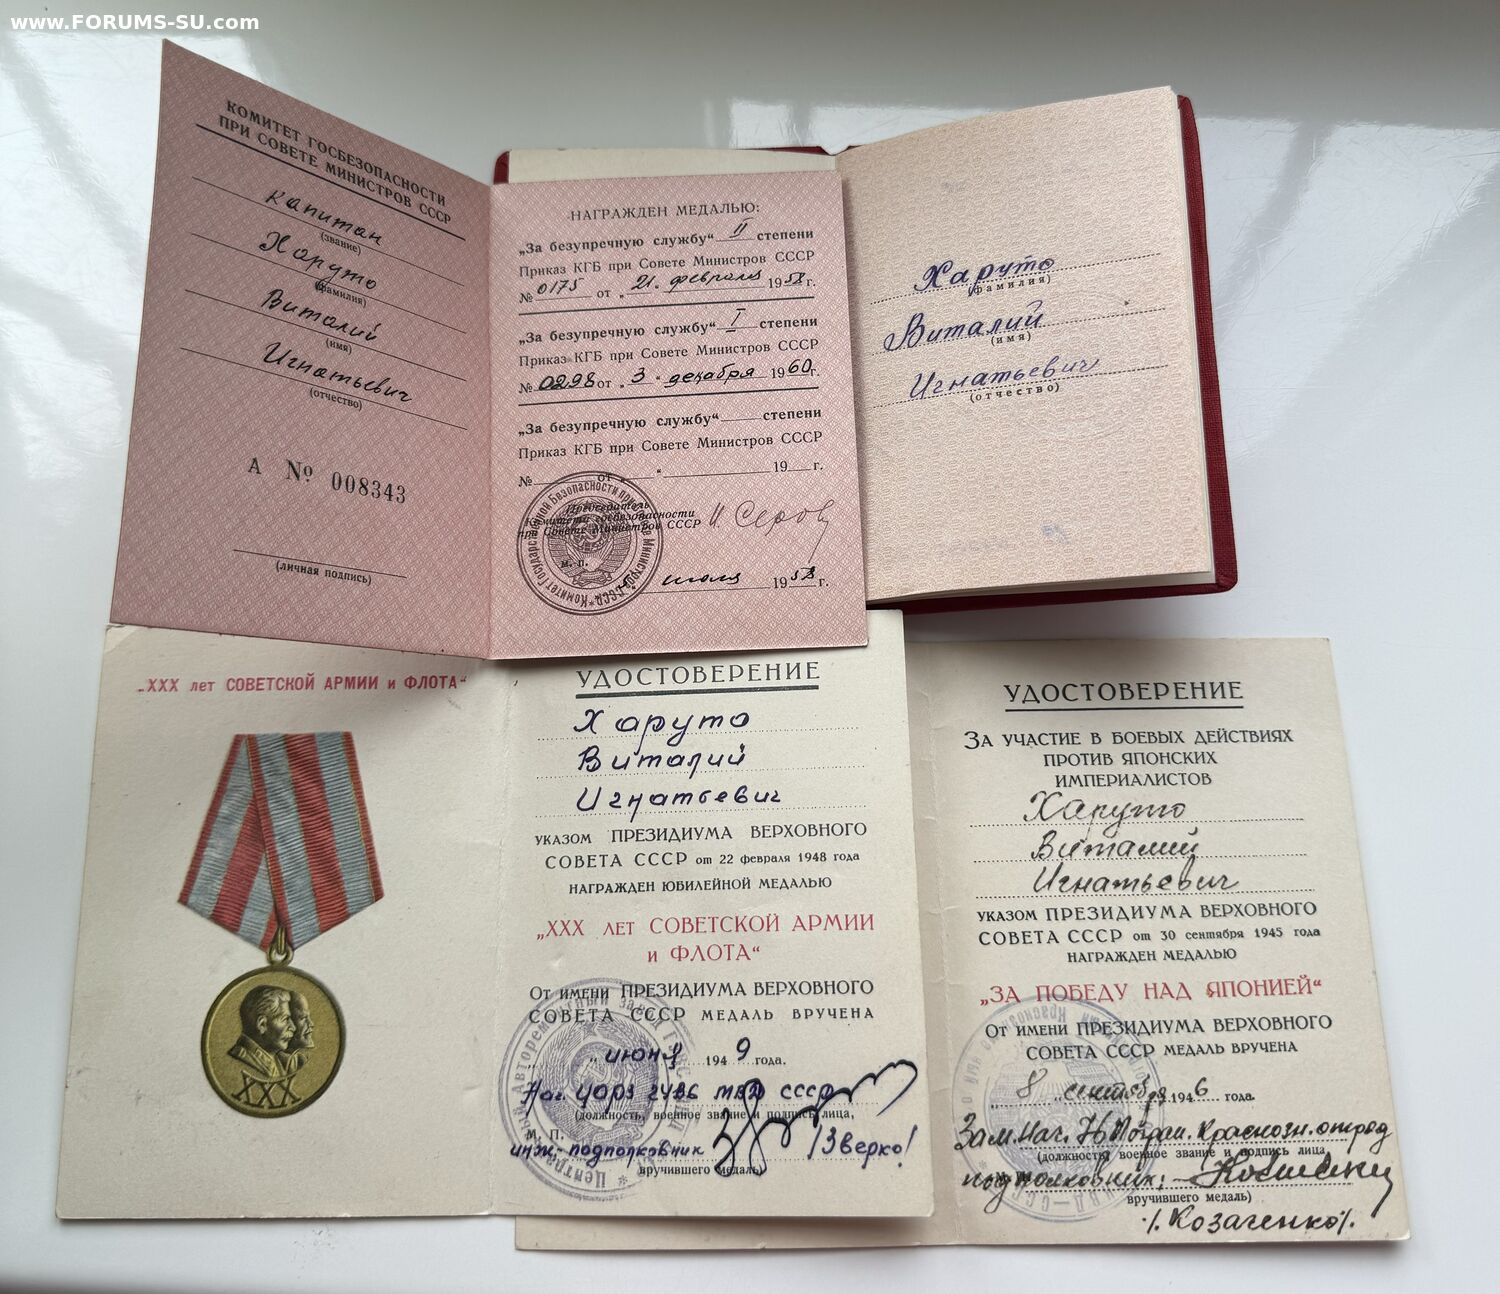 www.FORUMS-SU.com
КОМИТЕТ ГОСБЕЗОПАСНОСТИ
ПРИ СОВЕТЕ МИНИСТРОВ СССР
капитан
(звание)
Харуто
(фамилия)
Виталий
(имя)
Игнатьевич
(отчество)
А № 008343
(личная подпись)
НАГРАЖДЕН МЕДАЛЬЮ:
„За безупречную службу“ II степени
Приказ КГБ при Совете Министров СССР
№ 0175 от „21. февраля 1958 г.
„За безупречную службу“ I степени
Приказ КГБ при Совете Министров СССР
№ 0298 от „3. декабря 1960 г.
„За безупречную службу“ степени
Приказ КГБ при Совете Министров СССР
№ от „ “ 19 г.
Председатель
Комитета госбезопасности
при Совете Министров СССР
м. п.
июля 1958 г.
Харуто
(фамилия)
Виталий
(имя)
Игнатьевич
(отчество)
„XXX лет СОВЕТСКОЙ АРМИИ и ФЛОТА“
XXX
УДОСТОВЕРЕНИЕ
Харуто
Виталий
Игнатьевич
УКАЗОМ ПРЕЗИДИУМА ВЕРХОВНОГО
СОВЕТА СССР от 22 февраля 1948 года
НАГРАЖДЕН ЮБИЛЕЙНОЙ МЕДАЛЬЮ
„XXX ЛЕТ СОВЕТСКОЙ АРМИИ
И ФЛОТА“
ОТ ИМЕНИ ПРЕЗИДИУМА ВЕРХОВНОГО
СОВЕТА СССР МЕДАЛЬ ВРУЧЕНА
„ июня 1949 года.
Нач. ЦАРЗ ГУВС МВД СССР
(должность, военное звание и подпись лица,
М. П.
инж-подполковник /Зверко/
вручившего медаль)
УДОСТОВЕРЕНИЕ
ЗА УЧАСТИЕ В БОЕВЫХ ДЕЙСТВИЯХ
ПРОТИВ ЯПОНСКИХ
ИМПЕРИАЛИСТОВ
Харуто
Виталий
Игнатьевич
УКАЗОМ ПРЕЗИДИУМА ВЕРХОВНОГО
СОВЕТА СССР от 30 сентября 1945 года
НАГРАЖДЕН МЕДАЛЬЮ
„ЗА ПОБЕДУ НАД ЯПОНИЕЙ“
ОТ ИМЕНИ ПРЕЗИДИУМА ВЕРХОВНОГО
СОВЕТА СССР МЕДАЛЬ ВРУЧЕНА
„8 „сентября 1946 года.
Зам. Нач. Погран. Краснозн. отряд
(должность, военное звание и подпись лица,
подполковник:
вручившего медаль)
/. Козаченко/.